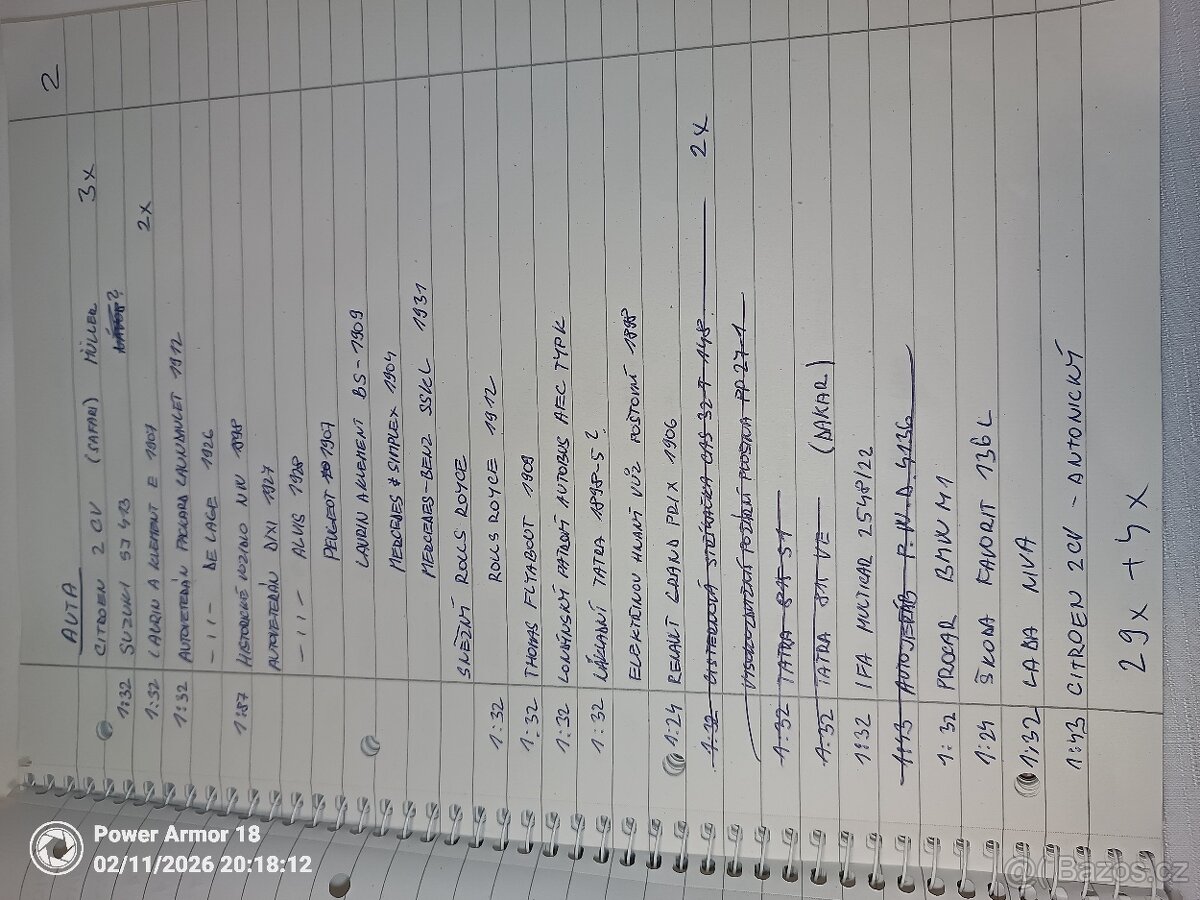 2
AUTA
CITROEN 2 CV (SAFARI) MÜLLER 3x
1:32 SUZUKI SJ 413 ?
1:32 LAURIN A KLEMENT E 1907 2x
1:32 AUTOVETERÁN PACKARD LAUNDAULET 1912
-11- DE LAGE 1926
1:87 HISTORICKÉ VOZIDLO NW 1898
AUTOVETERÁN DIXI 1927
-11- ALVIS 1928
PEUGEOT 1907
LAURIN A KLEMENT BS-1909
MERCEDES SIMPLEX 1904
MERCEDES-BENZ SSKL 1931
SNĚŽNÝ ROLLS ROYCE
1:32 ROLLS ROYCE 1912
1:32 THOMAS FLYABOUT 1909
1:32 LONDÝNSKÝ PATROVÝ AUTOBUS AEC TYP K
1:32 NÁKLADNÍ TATRA 1898-5 ?
ELEKTŘINOU HNANÝ VŮZ POŠTOVNÍ 1898
1:24 RENAULT GRAND PRIX 1906
1:32 CISTERNOVÁ STŘÍKAČKA CAS 32 T 148 2x
VYSOKOZDVIŽNÁ POŽÁRNÍ PLOŠINA PP 27-1
1:32 TATRA 815 S1
1:32 TATRA 815 VE (DAKAR)
1:32 IFA MULTICAR 2548/22
1:43 AUTOJEŘÁB
1:32 PROCAR BMW M1
1:24 ŠKODA FAVORIT 136L
1:32 LADA NIVA
1:43 CITROEN 2CV - ANTONICKÝ
29x + 4x
Power Armor 18
02/11/2026 20:18:12
Bazos.cz